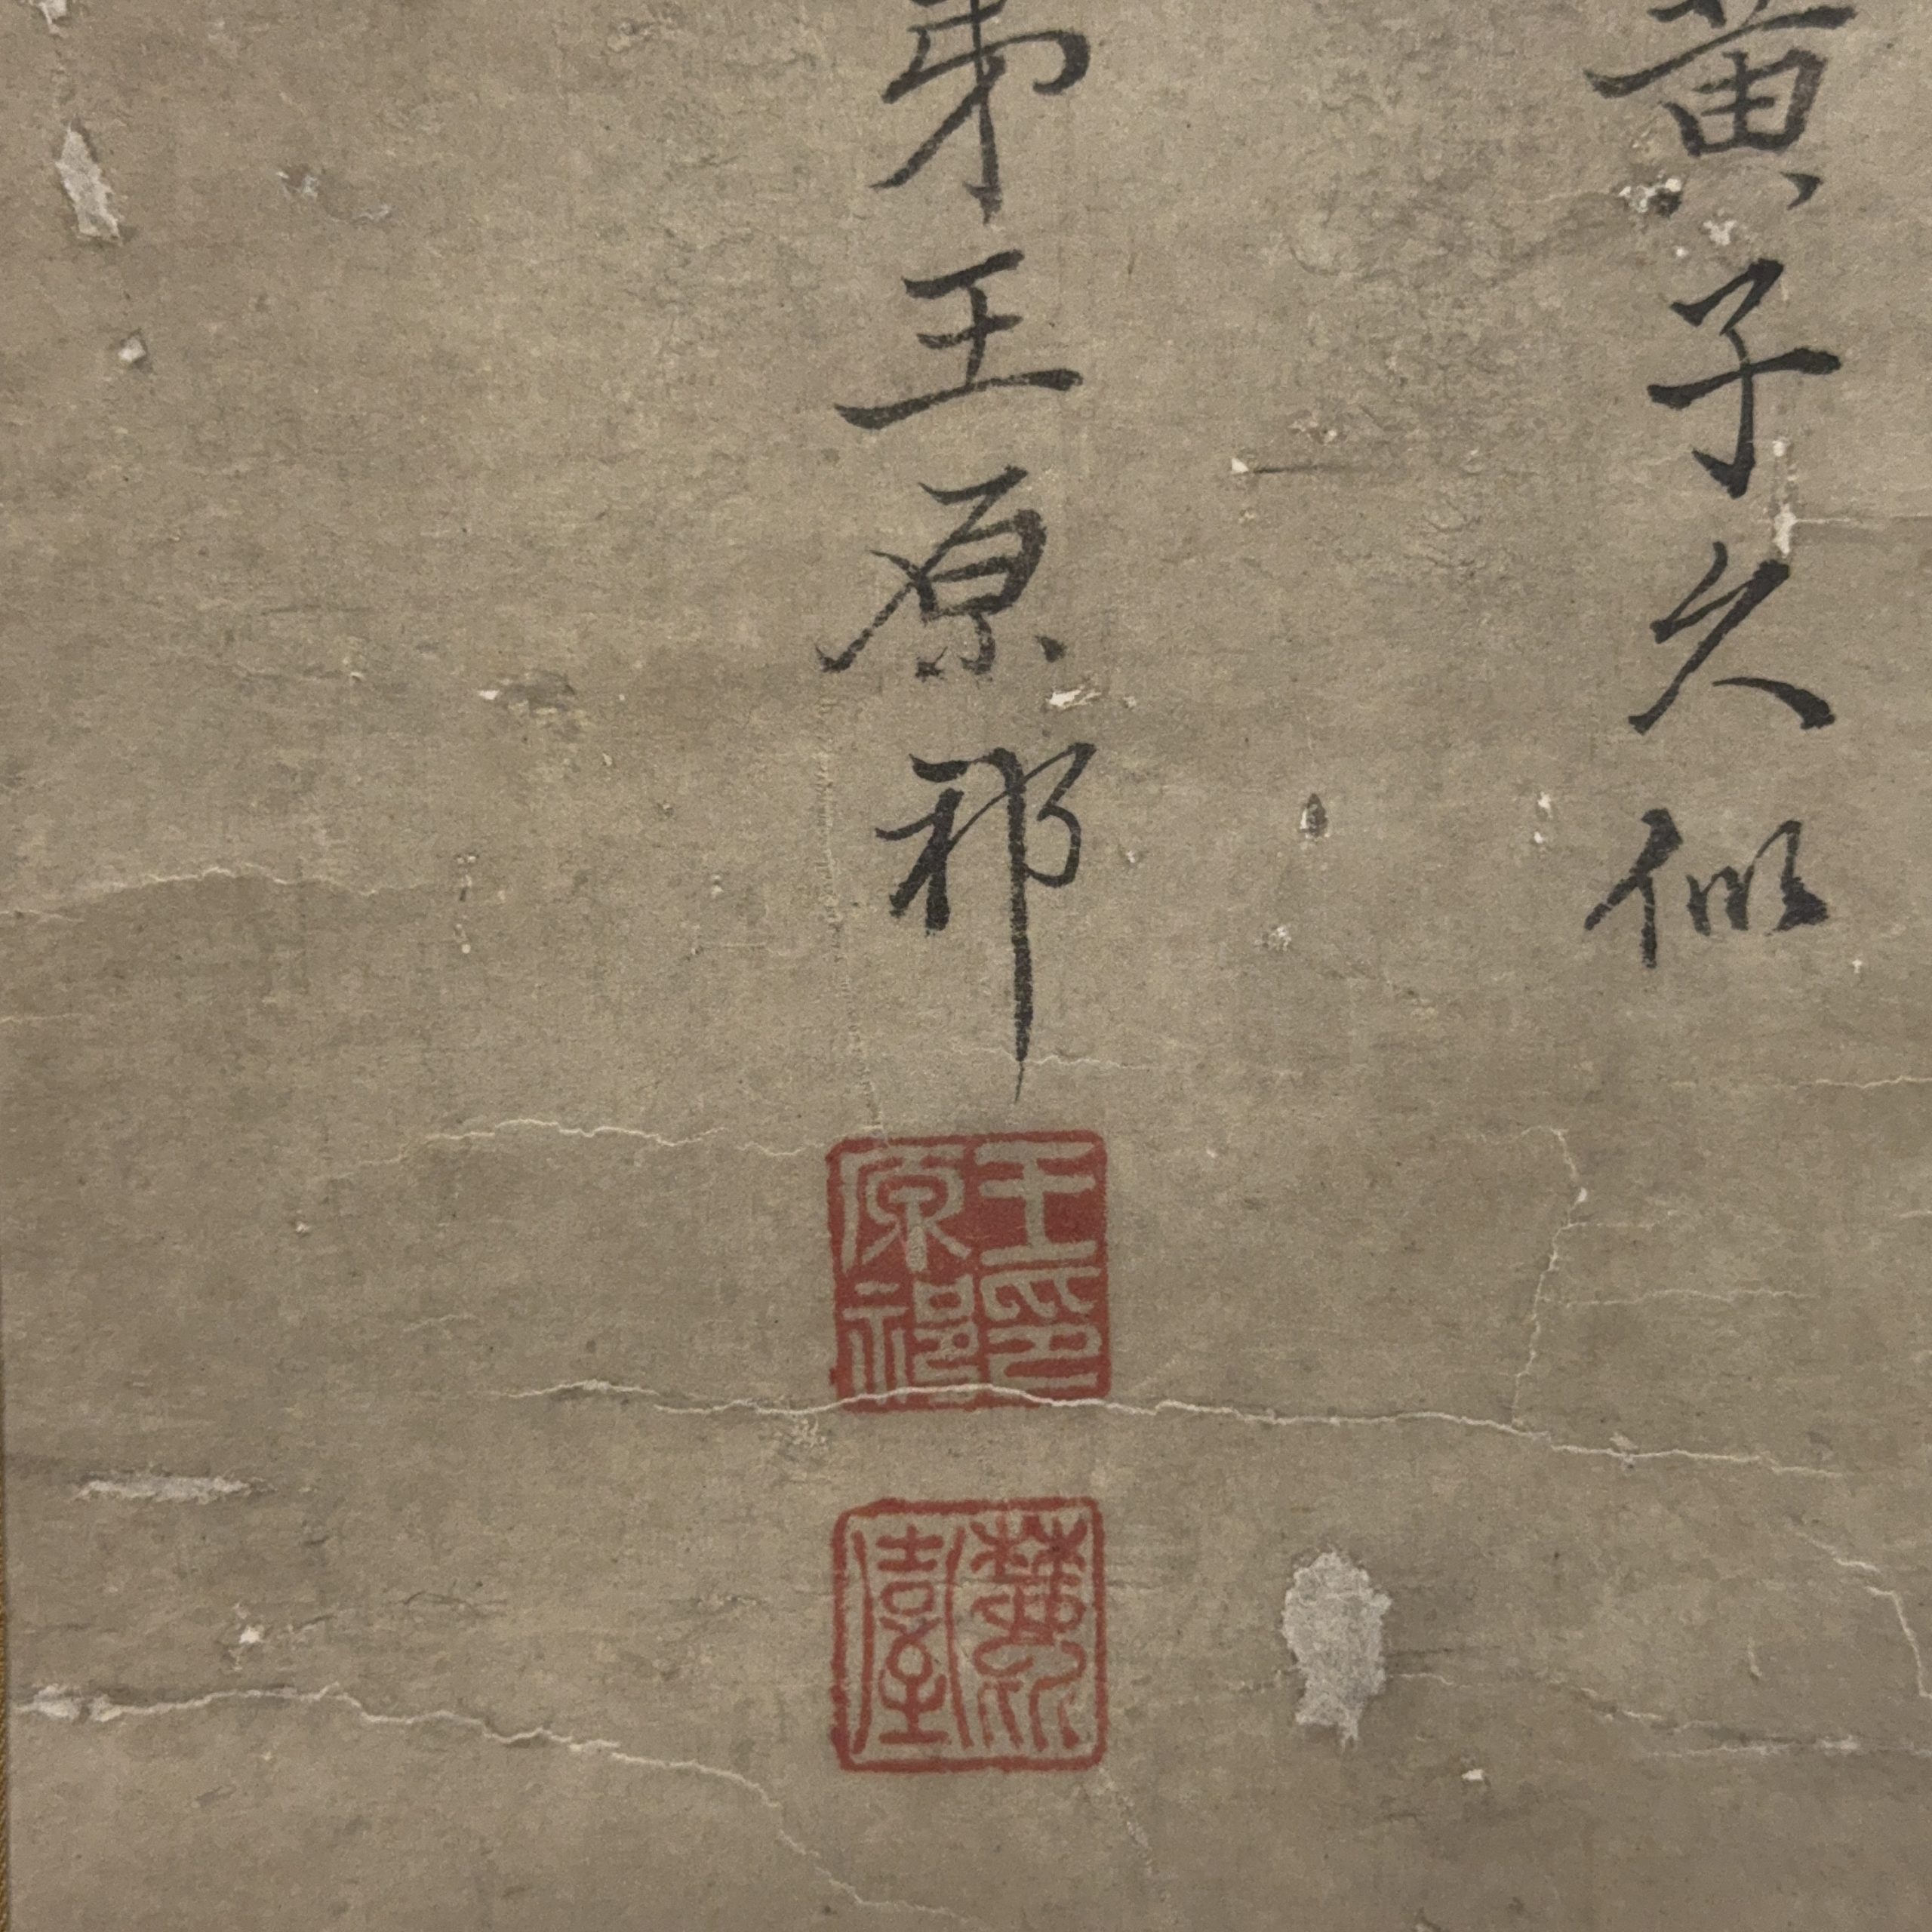 黃子久似
弟王原祁
王印
原祁
麓臺